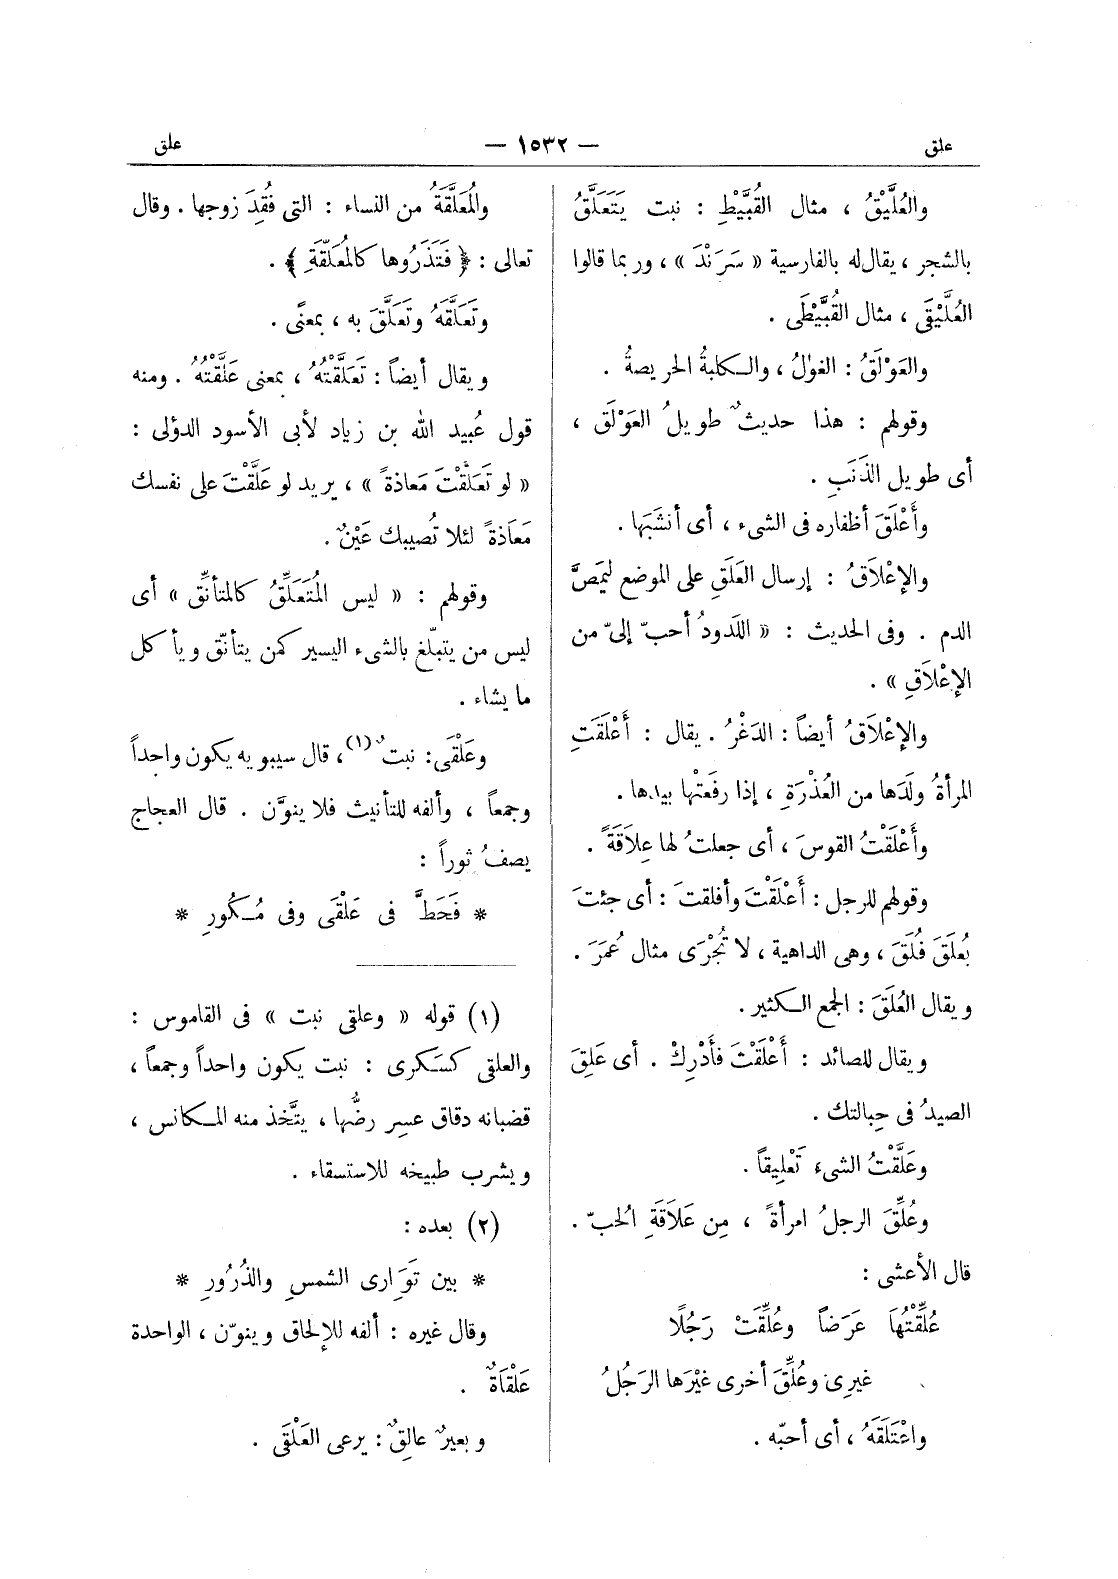 علق — ١٥٣٢ — علق
والعُلَّيْقُ ، مثال القُبَّيْطِ : نبت يَتَعَلَّقُ
بالشجر ، يقال له بالفارسية « سَرَنْدَ » ، وربما قالوا
العُلَّيْقَى ، مثال القُبَّيْطَى .
والعَوْلَقُ : الغولُ ، والكلبةُ الحريصةُ .
وقولهم : هذا حديثٌ طويلُ العَوْلَقِ ،
أى طويل الذَنَبِ .
وأَعْلَقَ أظفاره فى الشىء ، أى أنشَبَها .
والإعْلَاقُ : إرسال العَلَقِ على الموضع ليَمَصَّ
الدم . وفى الحديث : « اللَدودُ أحبّ إلىّ من
الإعْلَاقِ » .
والإعْلَاقُ أيضاً : الدَغْرُ . يقال : أَعْلَقَتِ
المرأةُ ولَدَها من العُذْرَةِ ، إذا رفعَتْها بيدها .
وأَعْلَقْتُ القوسَ ، أى جعلتُ لها عِلَاقَةً .
وقولهم للرجل : أَعْلَقْتَ وأفلقتَ : أى جئتَ
بُعلَقَ فُلَقَ ، وهى الداهية ، لا تُجْرَى مثال عُمَرَ .
ويقال العُلَقَ : الجمع الكثير .
ويقال للصائد : أَعْلَقْتَ فأَدْرِكْ . أى عَلِقَ
الصيدُ فى حِبالتك .
وعَلَّقْتُ الشىءَ تَعْلِيقاً .
وعُلِّقَ الرجلُ امرأةً ، مِن عَلَاقَةِ الحبّ .
قال الأعشى :
عُلِّقْتُها عَرَضاً وعُلِّقَتْ رَجُلًا
غيرِى وعُلِّقَ أخرى غيْرَها الرَجُلُ
واعْتَلَقَهُ ، أى أحبّه .
والمُعَلَّقَةُ من النساء : التى فُقِدَ زوجها . وقال
تعالى : ﴿ فَتَذَرُوها كالمُعَلَّقَةِ ﴾ .
وتَعَلَّقَهُ وتَعَلَّقَ به ، بمعنًى .
ويقال أيضاً : تَعَلَّقْتُهُ ، بمعنى عَلَّقْتُهُ . ومنه
قول عُبيد الله بن زياد لأبى الأسود الدؤلى :
« لو تَعَلَّقْتَ مَعاذةً » ، يريد لو عَلَّقْتَ على نفسك
مَعَاذةً لئلا تُصيبك عَيْنٌ .
وقولهم : « ليس المُتَعَلِّقُ كالمتأنِّق » أى
ليس من يتبلّغ بالشىء اليسير كمن يتأنّق ويأكل
ما يشاء .
وعَلْقَى : نبتٌ (١)، قال سيبويه يكون واحداً
وجمعاً ، وألفه للتأنيث فلا ينوَّن . قال العجاج
يصفُ ثوراً :
* فَحَطَّ فى عَلْقَى وفى مُكورِ *
(١) قوله « وعلقى نبت » فى القاموس :
والعلقى كسَكرى : نبت يكون واحداً وجمعاً ،
قضبانه دقاق عسِر رضُّها ، يتَّخذ منه المكانس ،
ويشرب طبيخه للاستسقاء .
(٢) بعده :
* بين تَوَارِى الشمسِ والذُرُورِ *
وقال غيره : ألفه للإلحاق وينوّن ، الواحدة
عَلْقَاةٌ .
وبعيرٌ عالِقٌ : يرعى العَلْقَى .